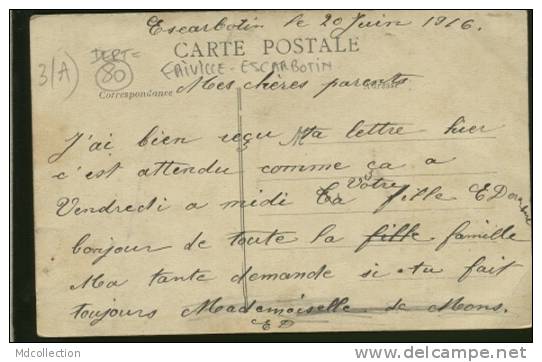 Escarbotin le 20 Juin 1916.
CARTE POSTALE
DEPT=
3/(A) 80 FRIVILLE-ESCARBOTIN
Correspondance Adresse
Mes chères parents
J'ai bien reçu Ma lettre hier
c'est attendu comme ça a
Votre
Vendredi a midi La fille E
bonjour de toute la fille famille
Ma tante demande si tu fait
toujours Mademoiselle de Mons.
ED
Mdcollection
http://www.delcampe.net